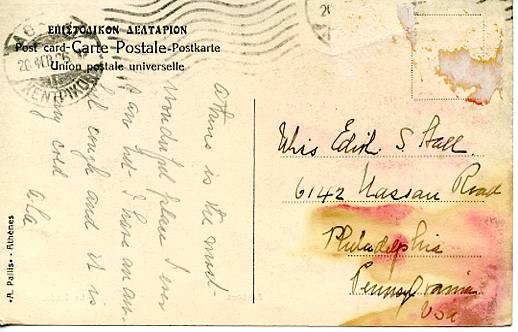 ΕΠΙΣΤΟΛΙΚΟΝ ΔΕΛΤΑΡΙΟΝ
Post card-Carte Postale-Postkarte
Union postale universelle
ΚΕΝΤΡΙΚΟΝ
athens is the most
wonderful place I ever
I have an
cough and it is
cold
Miss Edith S Hall
6142 Nassau Road
Philadelphia
Pennsylvania
USA
«A. Pallis» - Athènes